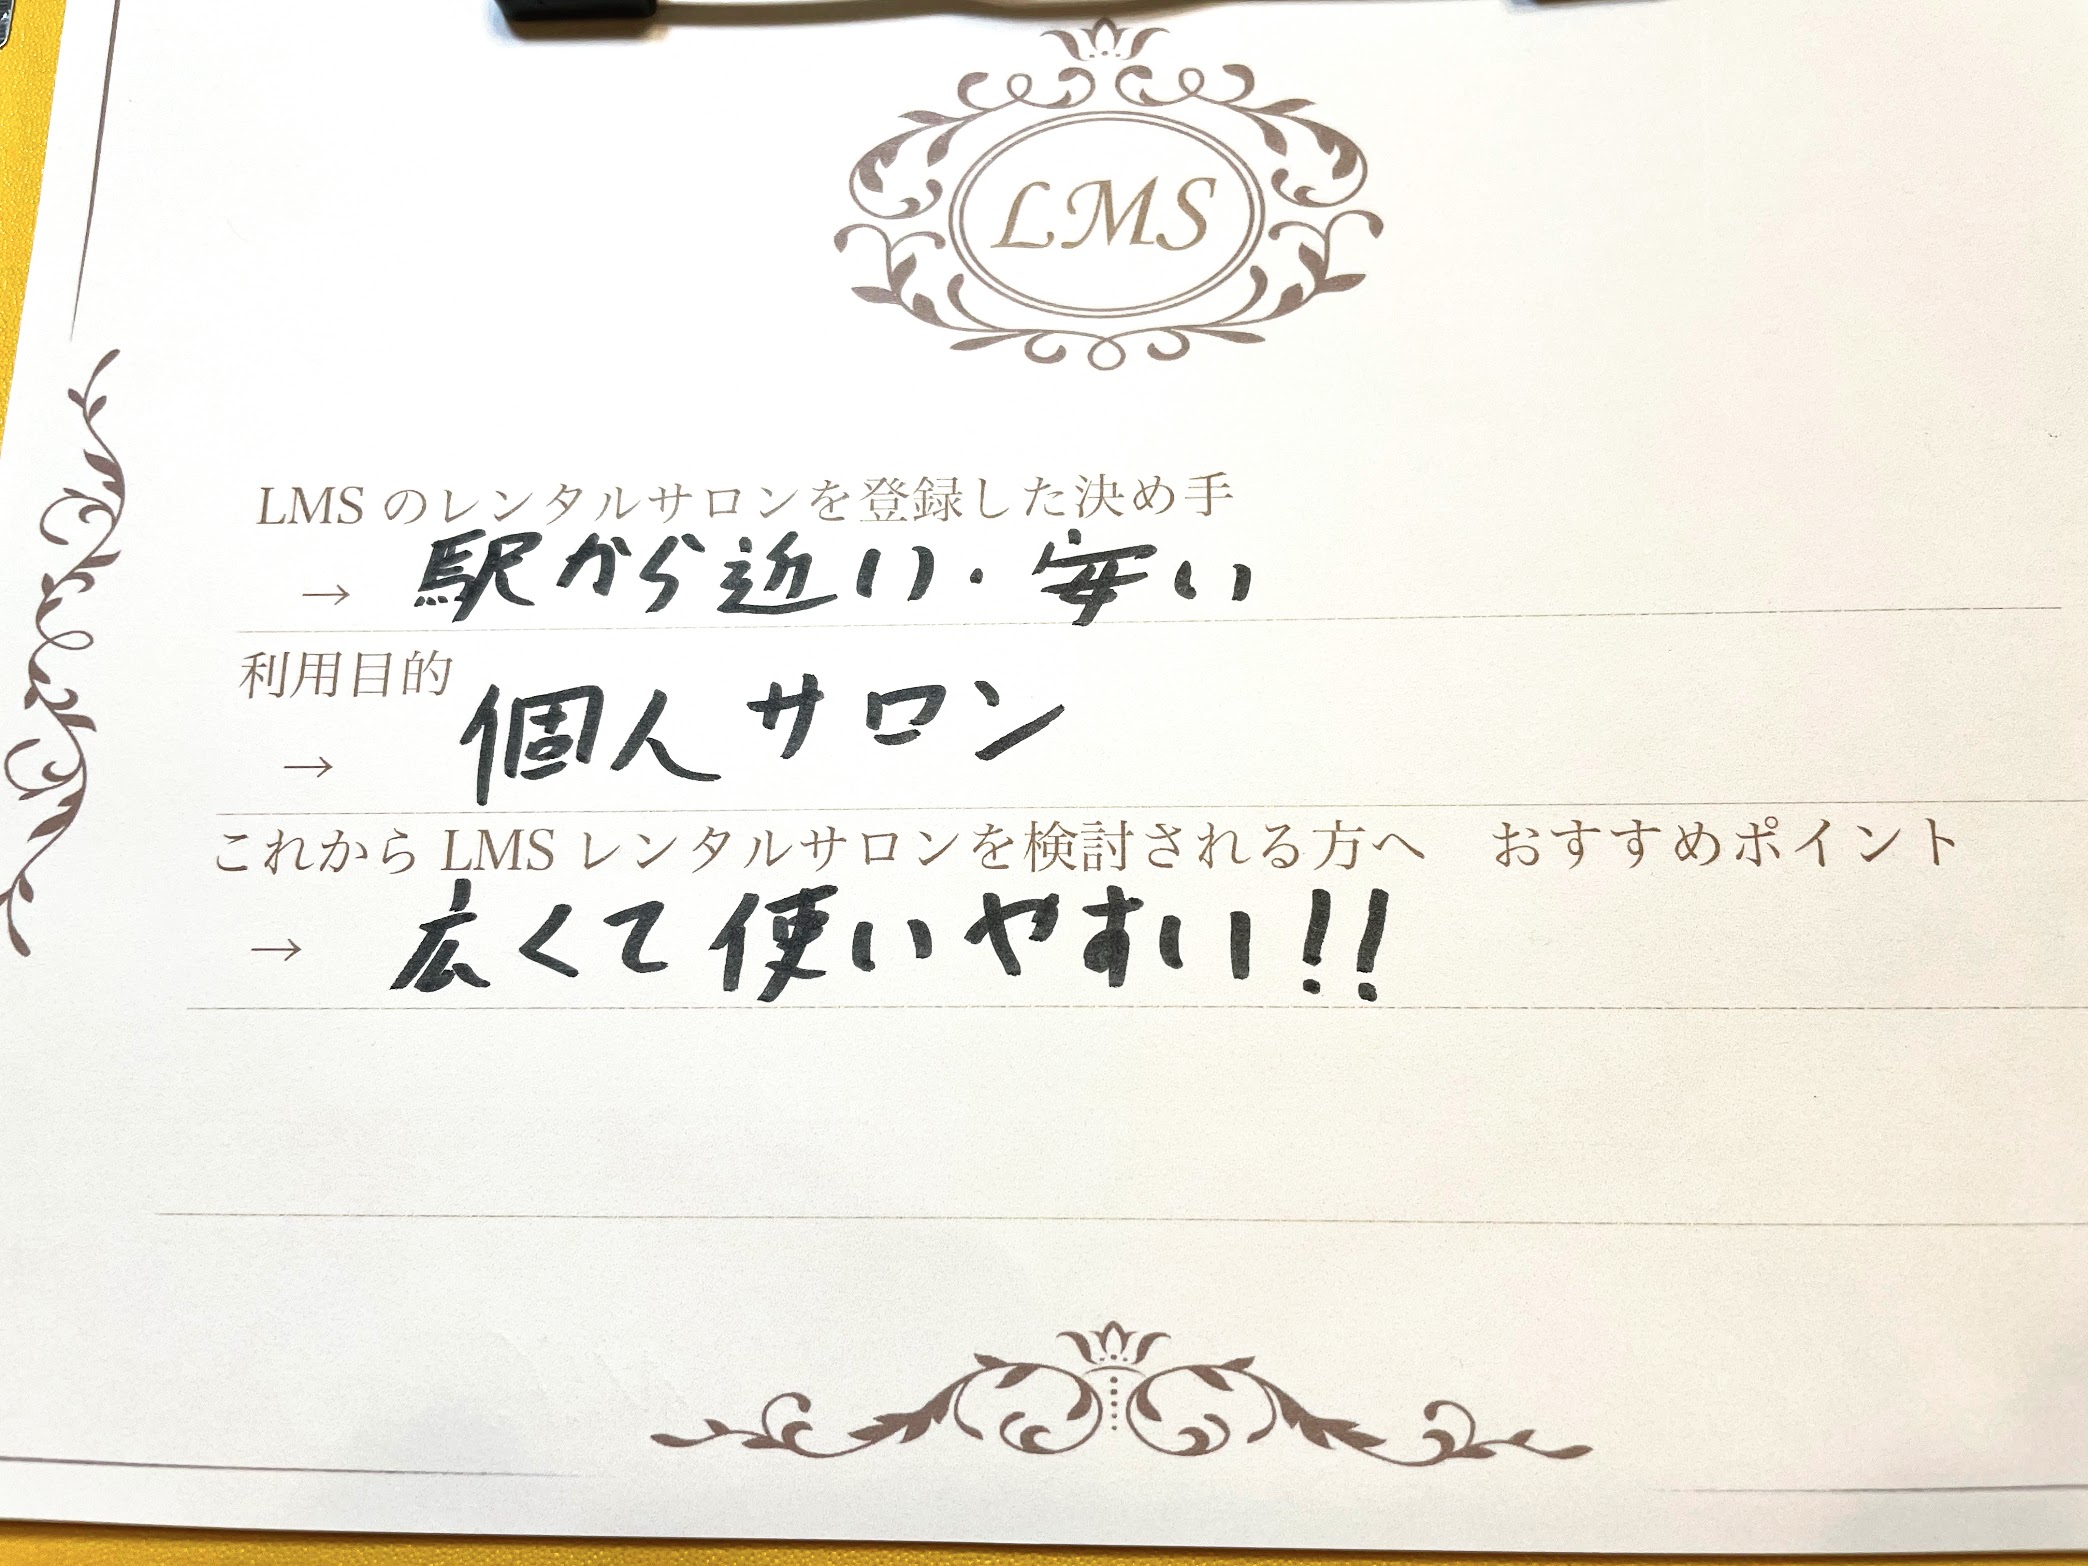 LMS
LMS のレンタルサロンを登録した決め手
→ 駅から近い・安い
利用目的
→ 個人サロン
これから LMS レンタルサロンを検討される方へ　おすすめポイント
→ 広くて使いやすい!!